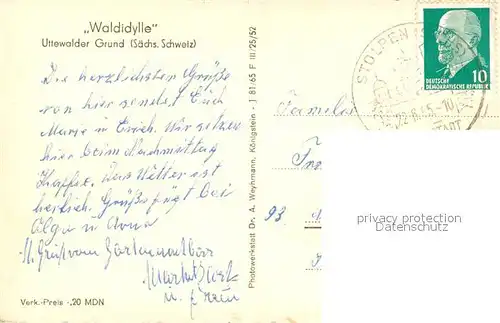 „Waldidylle"
Uttewalder Grund (Sächs. Schweiz)
Die herzlichsten Grüße
von hier sendet Euch
Marie u. Erich. Wir sitzen
hier beim Nachmittag
Kaffee. Das Wetter ist
herrlich. Grüße fügt bei
Olga u
M. Gruß vom
u. Frau
Verk.-Preis -,20 MDN
Photowerkstatt Dr. A. Weyhmann, Königstein - J 81/65 F III/25/52
STOLPEN
22.6.65-10
STADT
DEUTSCHE
DEMOKRATISCHE REPUBLIK
10
Familie
93
privacy protection
Datenschutz